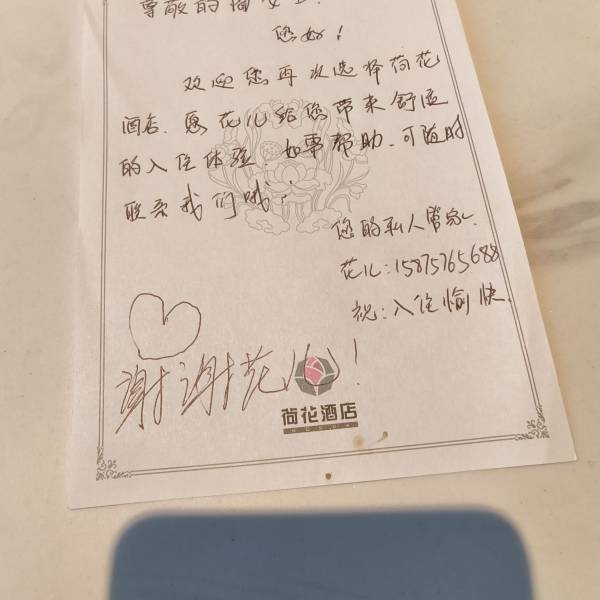 尊敬的周女士:
您好!
欢迎您再次选择荷花
酒店.愿花儿给您带来舒适
的入住体验.如需帮助.可随时
联系我们哦!
您的私人管家~
花儿:15875765688
祝:入住愉快.
谢谢花儿!
荷花酒店